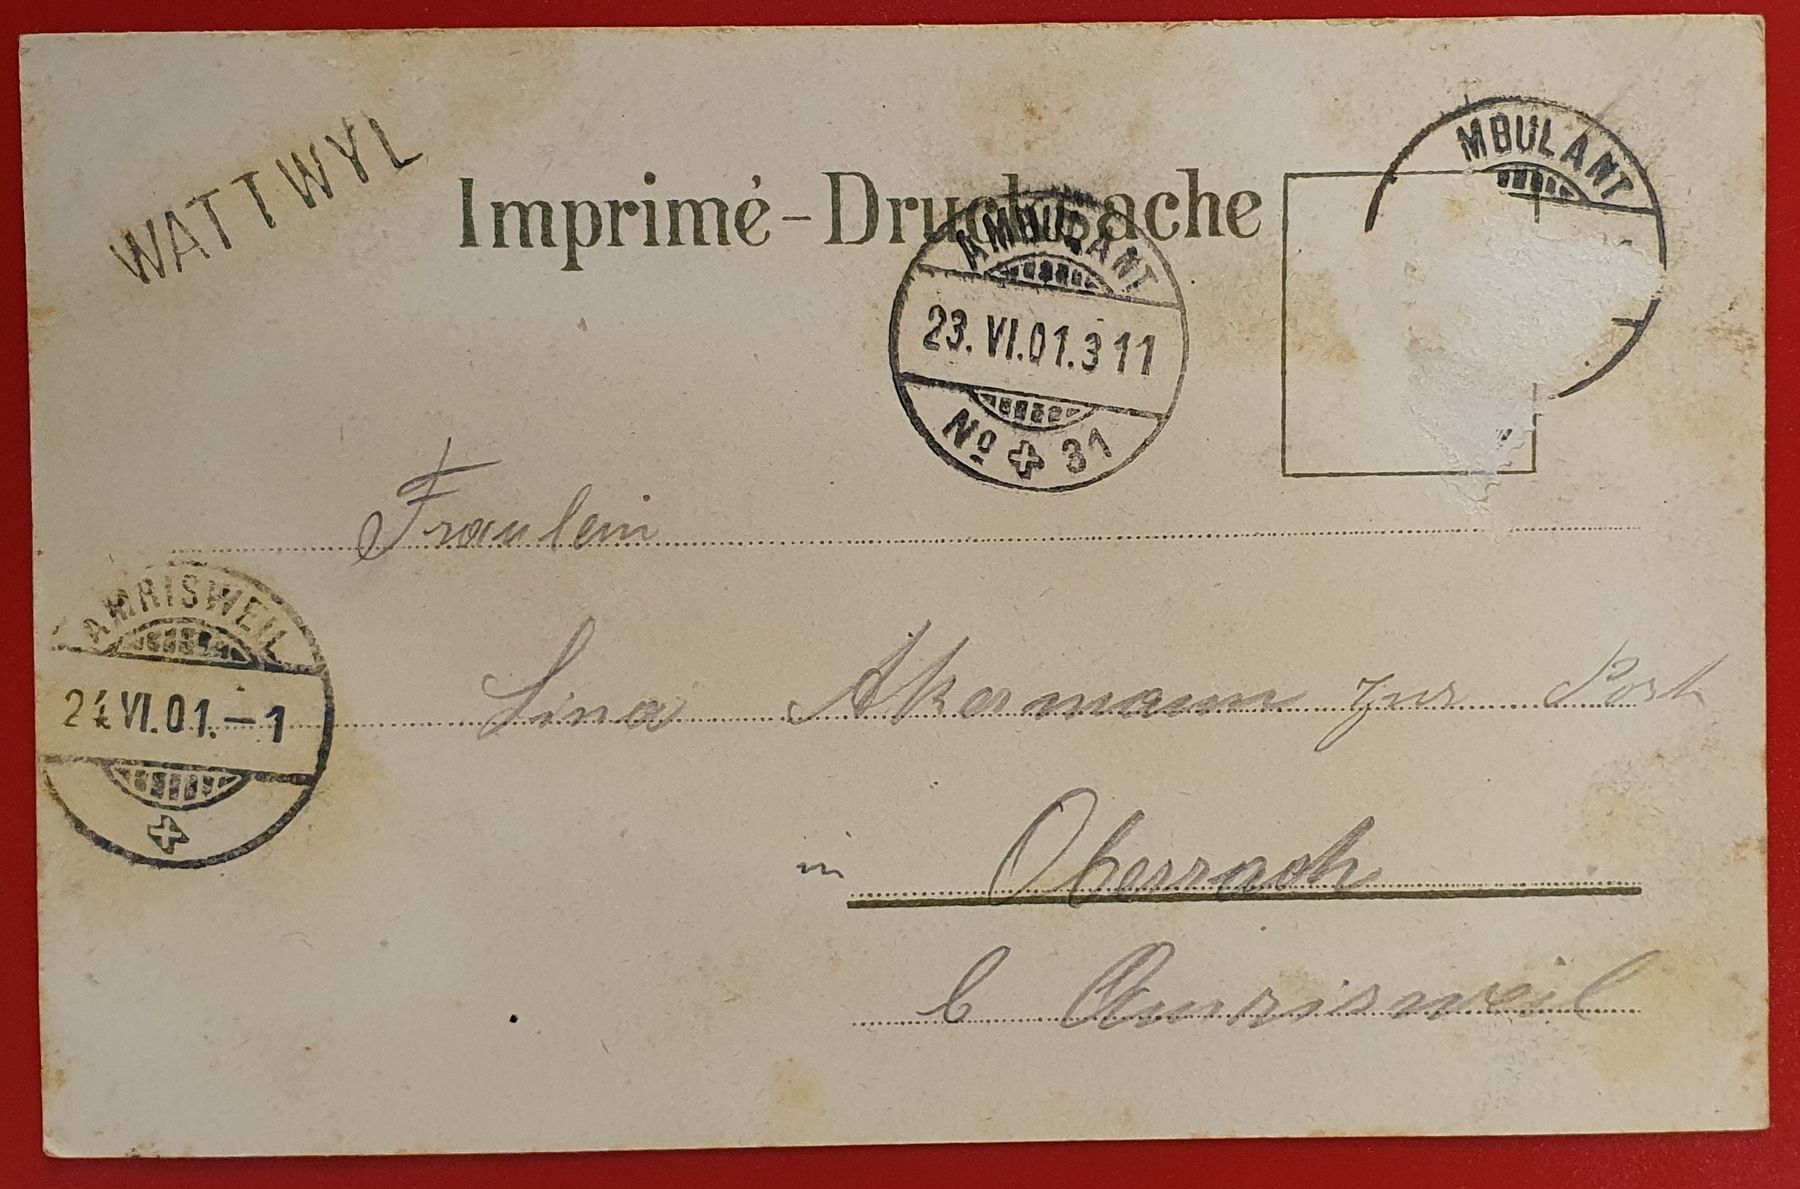 WATTWYL
Imprimé - Drucksache
MBULANT
AMBULANT
23. VI. 01. 3 11
No 31
Fräulein
AMRISWEIL
Lina Akermann zur Post
24 VI. 01. - 1
in Oberrach
b Amrisweil